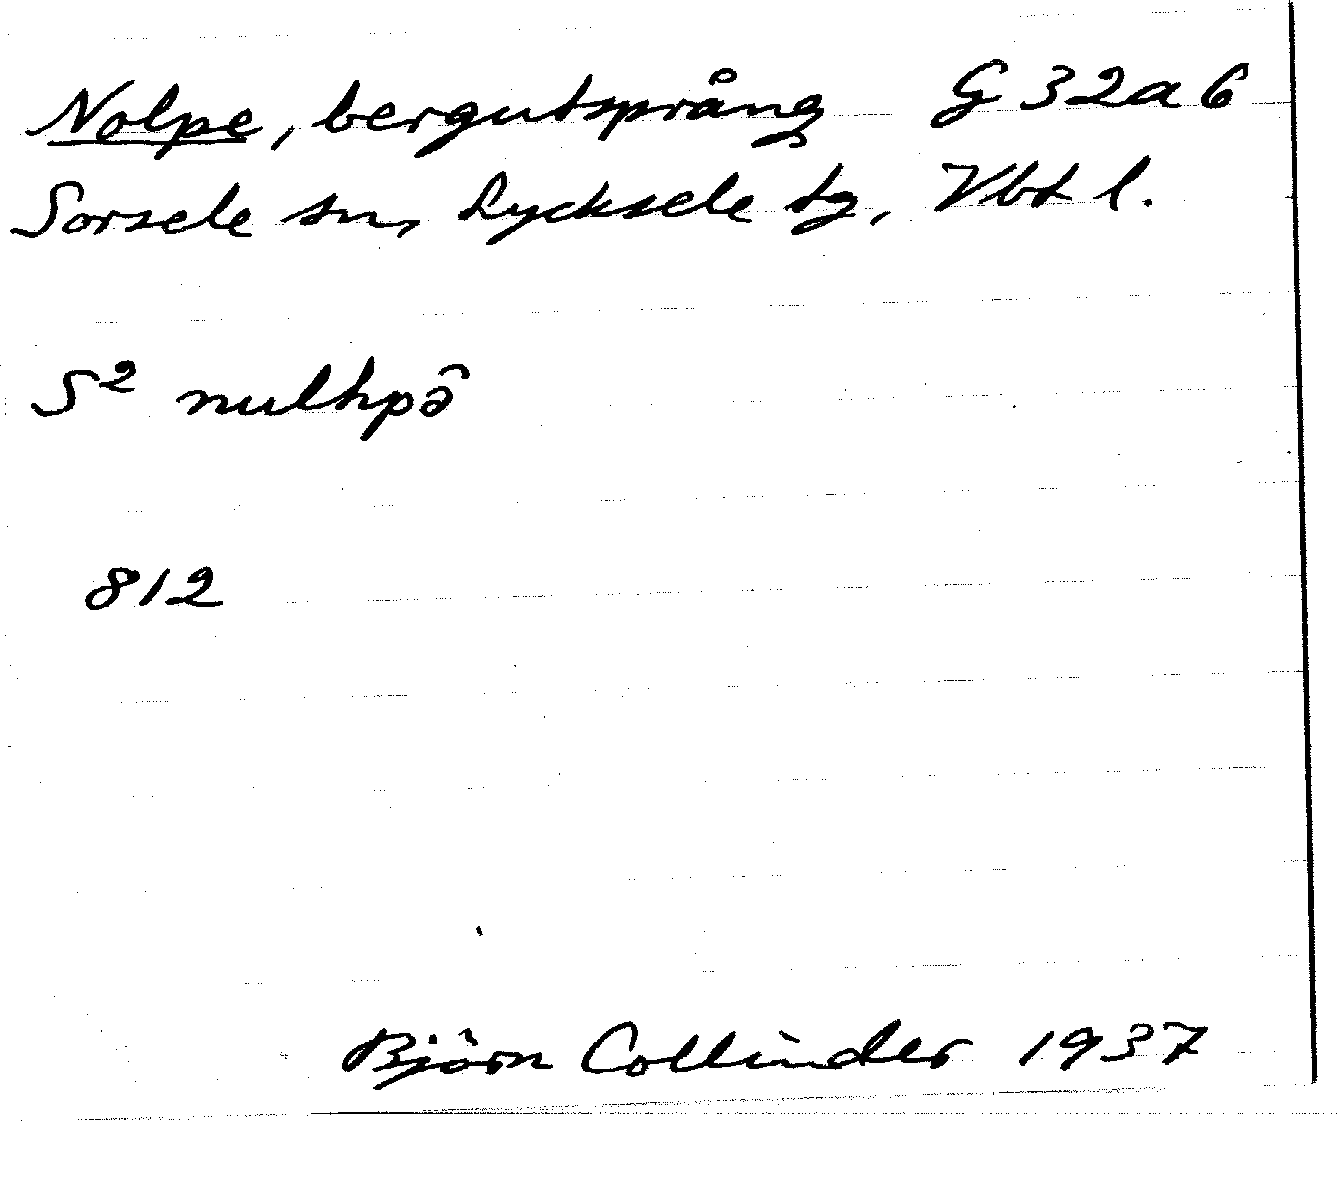 Nolpe, bergutsprång G 32 a 6
Sorsele sn, Lycksele tg, Vbt l.
S² nulhpə̂
812
Björn Collinder 1937